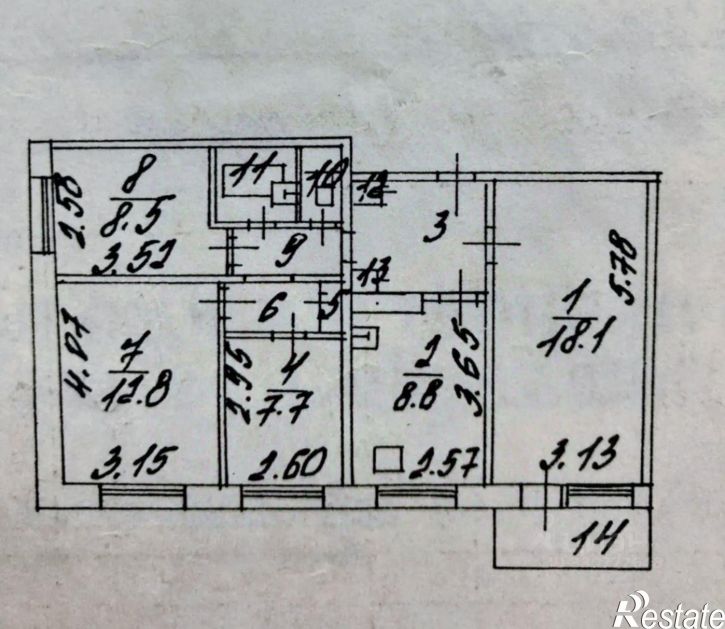 8
8.5
2.58
3.52
11
10
12
3
9
13
1
18.1
5.78
3.13
6
5
7
12.8
4.07
3.15
4
7.7
2.95
2.60
2
8.8
3.65
2.57
14
Restate